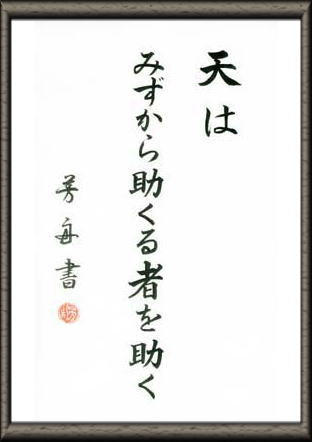 天は
みずから助くる者を助く
芳舟書